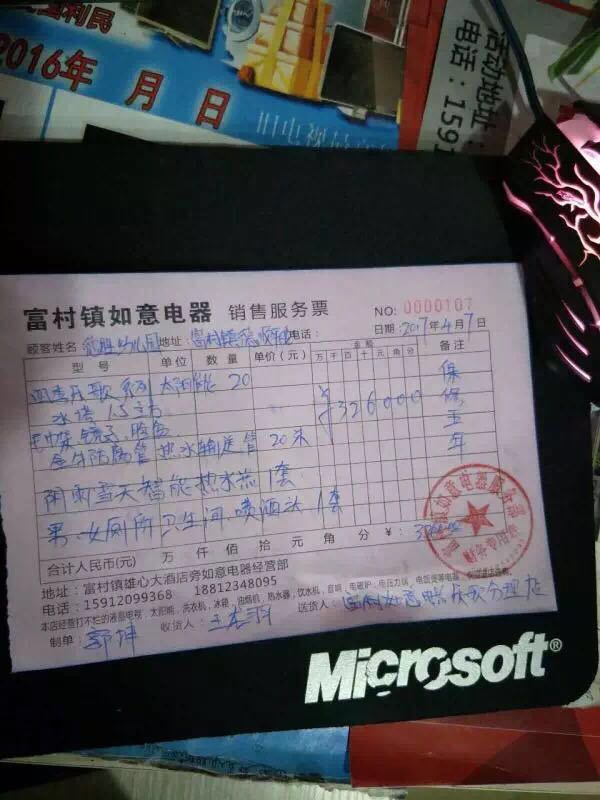 国利民
2016年 月 日
旧电视
活动地址:
电话:1591
富村镇如意电器 销售服务票
NO: 0000107
日期:2017年4月7日
顾客姓名 幼儿园 地址: 富村镇 电话:
型号 单位 数量 单价(元) 金额 备注
万 千 百 十 元 角 分
系列 太阳能 20
水塔 1.5立方
¥326000
保
五
年
毛巾架 镜子
防腐管 热水输送管 20米
阴雨雪天智能热水器1套
男.女厕所卫生间.喷洒头1套
合计人民币(元) 万 仟 佰 拾 元 角 分 ¥:
地址:富村镇雄心大酒店旁如意电器经营部
电话:15912099368 18812348095
本店经营打不烂的液晶电视、太阳能、洗衣机、冰箱、油烟机、热水器、饮水机、音响、电磁炉、电压力锅、电饭煲等电器
制单: 郭坤 收货人: 送货人: 富村如意电器
Microsoft®